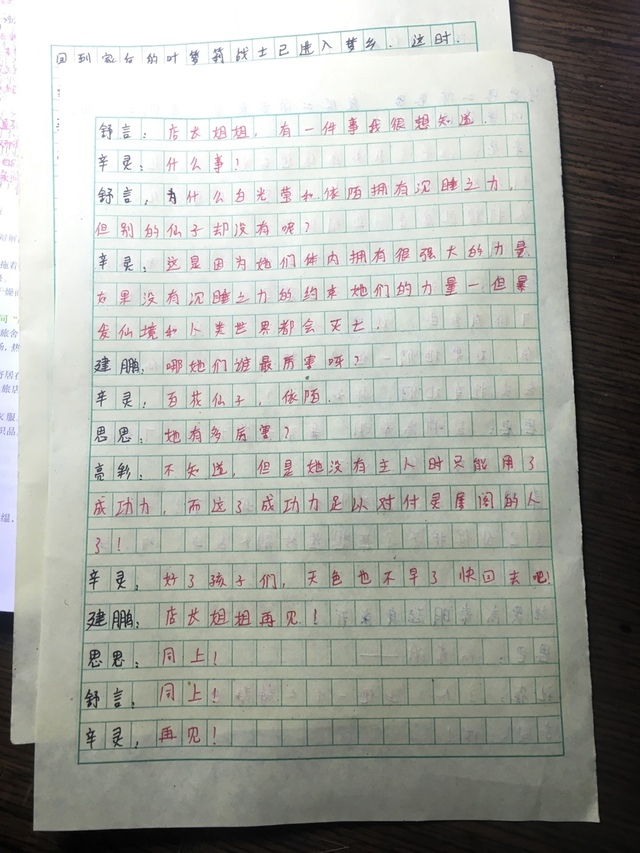 回到家后的叶萝莉战士已进入梦乡.这时.
舒言：店长姐姐，有一件事我很想知道.
辛灵：什么事！
舒言，为什么白光莹和依陌拥有沉睡之力，
但别的仙子却没有呢？
辛灵：这是因为她们体内拥有很强大的力量.
如果没有沉睡之力的约束她们的力量一但暴
发仙境和人类世界都会灭亡.
建鹏：哪她们谁最厉害呀？
辛灵：百花仙子，依陌.
思思：她有多厉害？
亮彩：不知道，但是她没有主人时只能用了
成功力，而这了成功力足以对付灵犀阁的人
了！
辛灵：好了孩子们，天色也不早了快回去吧！
建鹏：店长姐姐再见！
思思：同上！
舒言：同上！
辛灵：再见！